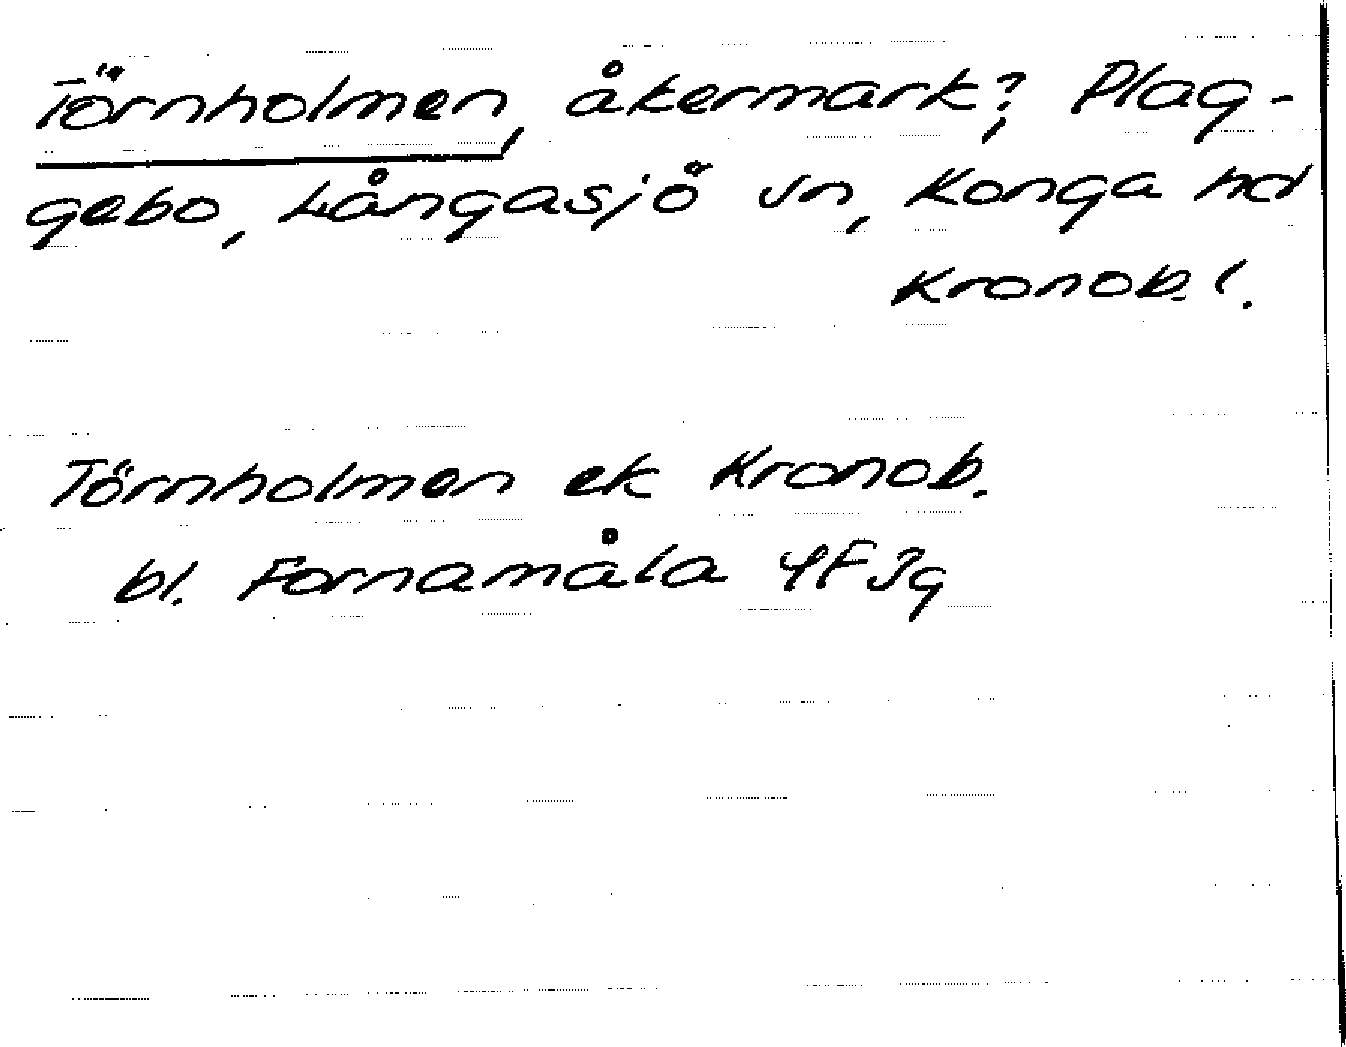 Törnholmen, åkermark?, Plag-
gebo, Långasjö sn, Konga hd
Kronob. l.
Törnholmen ek Kronob.
bl. Fornamåla 4F3g